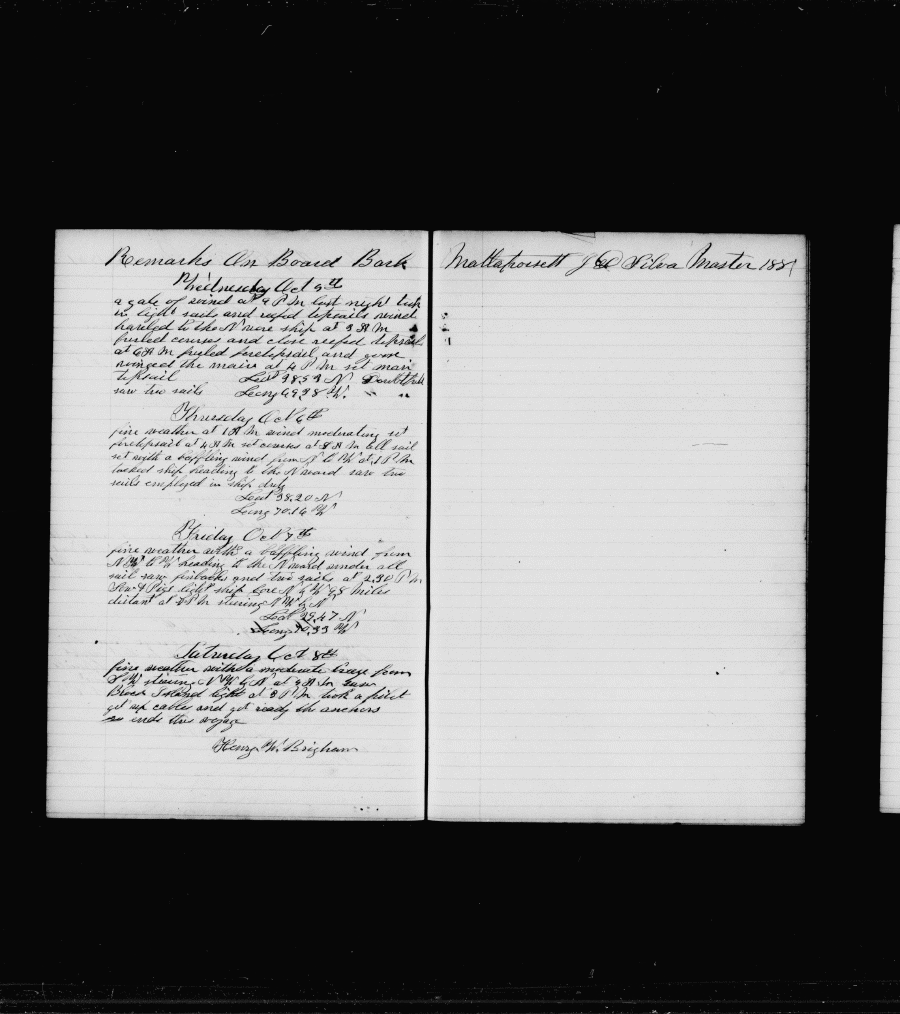 Remarks On Board Bark
Mattapoisett J Silva Master 188
Wednesday Oct 5th
a gale of wind at 9 P M last night took
in light sails and reefd topsails wind
hauled to the N wore ship at 3 A M
furled courses and close reefed topsail
at 6 A M furled foretopsail and goose
winged the main at 4 P M set main
topsail Lat 38.59 N Doubtful
saw two sails Long 69.38 W. " "
Thursday Oct 6th
fine weather at 1 A M wind moderating set
foretopsail at 4 A M set courses at 8 A M all sail
set with a baffling wind from N to W at 1 P M
tacked ship heading to the N ward saw two
sails employed in ship duty
Lat 38.20 N
Long 70.16 W
Friday Oct 7th
fine weather with a baffling wind from
N W to W heading to the N ward under all
sail saw finbacks and two sails at 2.30 P M
Sow & Pigs light ship bore N W 98 Miles
distant at P M steering N W by N
Lat 39.47 N
Long 70.33 W
Saturday Oct 8th
fine weather with a moderate breeze from
S W steering N W by N at 3 A M saw
Block Island light at 8 P M took a pilot
got up cables and got ready the anchors
so ends this voyage
Henry W. Brigham